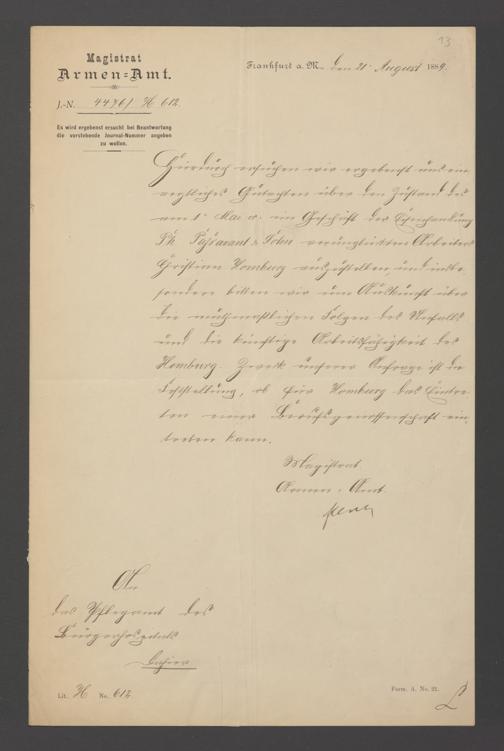 13
Magistrat
Armen=Amt.
Frankfurt a. M., den 21. August 1889.
J.-N. 4476/ H 612.
Es wird ergebenst ersucht bei Beantwortung
die vorstehende Journal-Nummer angeben
zu wollen.
Hierdurch ersuchen wir ergebenst uns ein
aerztliches Gutachten über den Zustand des
am 1. Mai cr. im Geschäft der Eisenhandlung
Ph. Passavant & Sohn verunglückten Arbeiters
Christian Homburg auszustellen, und insbe
sondere bitten wir um Auskunft über
die muthmasslichen Folgen des Unfalls
und die künftige Arbeitsfähigkeit des
Homburg. Zweck unserer Anfrage ist die
Feststellung, ob für Homburg das Eintre
ten einer Berufsgenossenschaft ein
treten kann.
Magistrat
Armen-Amt.
An
das Pflegamt des
Bürgerhospitals
dahier
Lit. H No. 612
Form. A. No. 21.